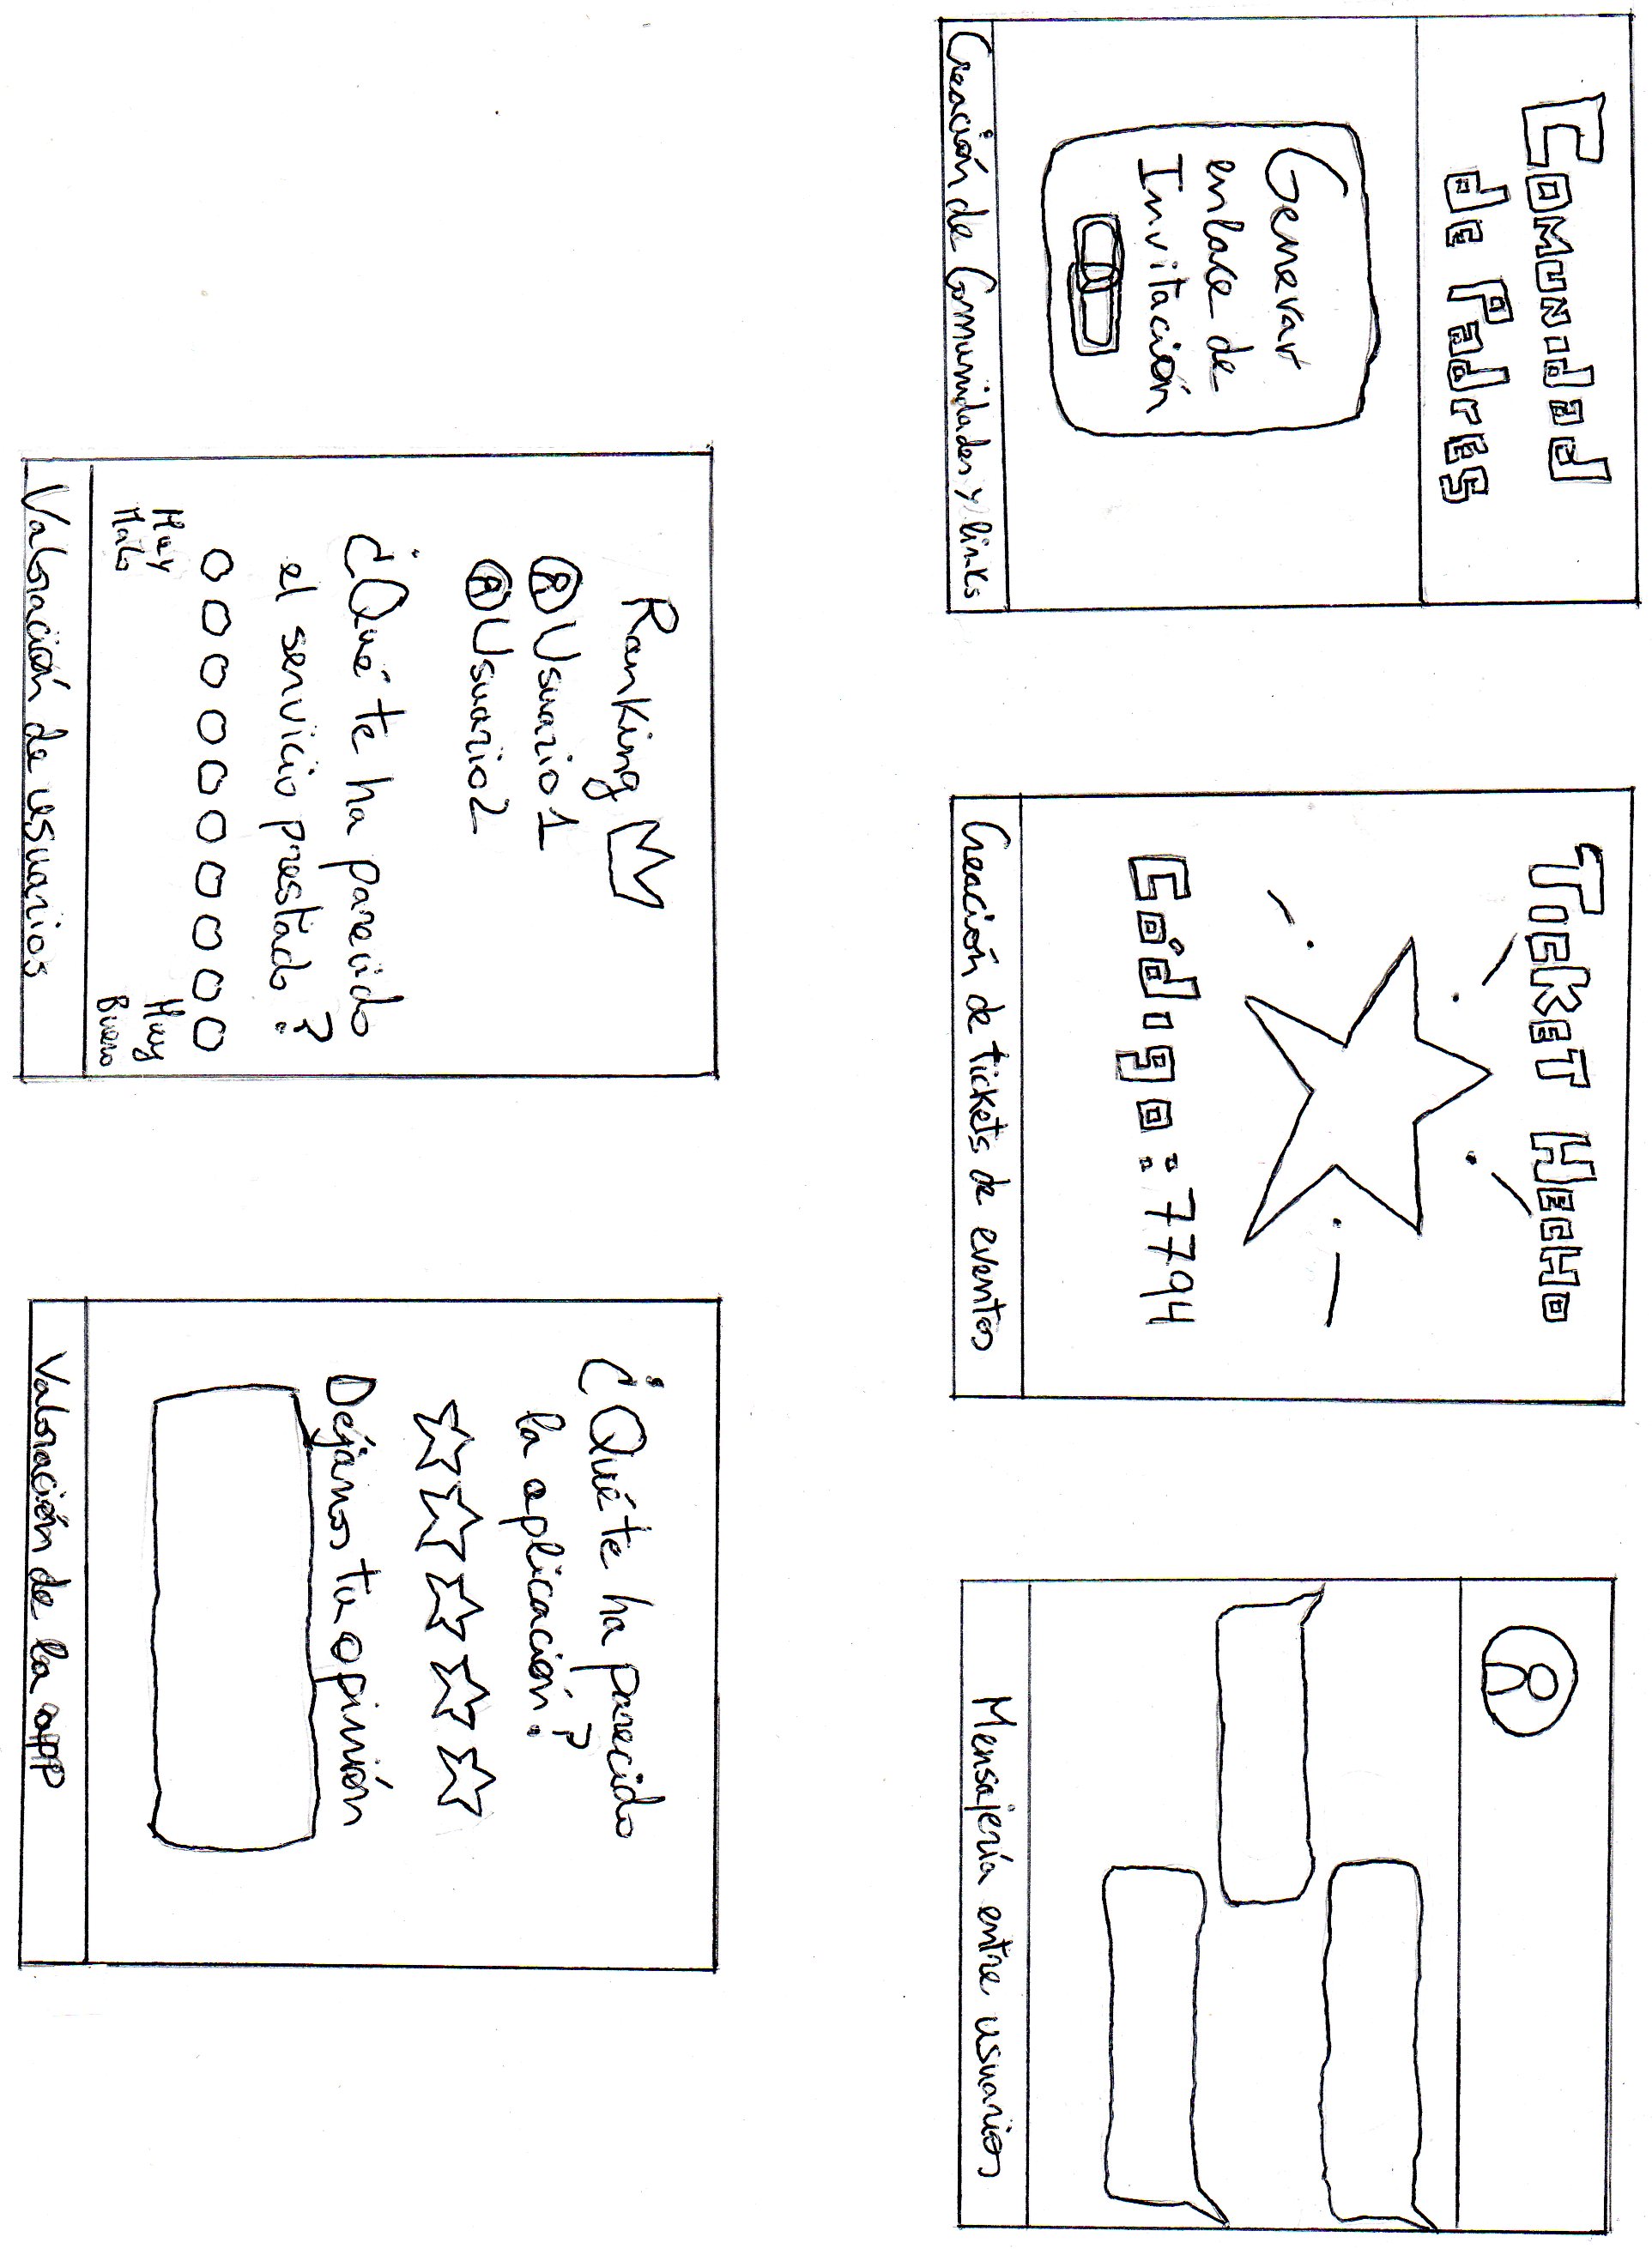 Comunidad
de Padres
Generar
enlace de
Invitación
Creación de Comunidades y links
Ticket Hecho
Código: 7794
Creación de tickets de eventos
Mensajería entre usuarios
Ranking
Usuario 1
Usuario 2
¿Qué te ha parecido
el servicio prestado?
Muy
Malo
Muy
Bueno
Valoración de usuarios
¿Qué te ha parecido
la aplicación?
Déjanos tu opinión
Valoración de la app